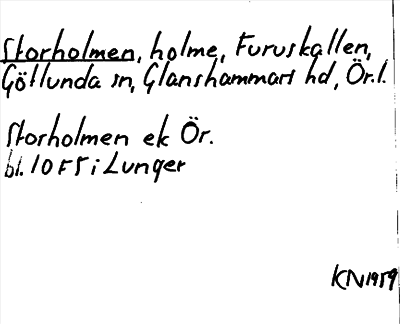 Storholmen, holme, Furuskallen,
Götlunda sn, Glanshammars hd, Ör. l.
Storholmen ek Ör.
bl. 10 F 5 i Lunger
KN 1959